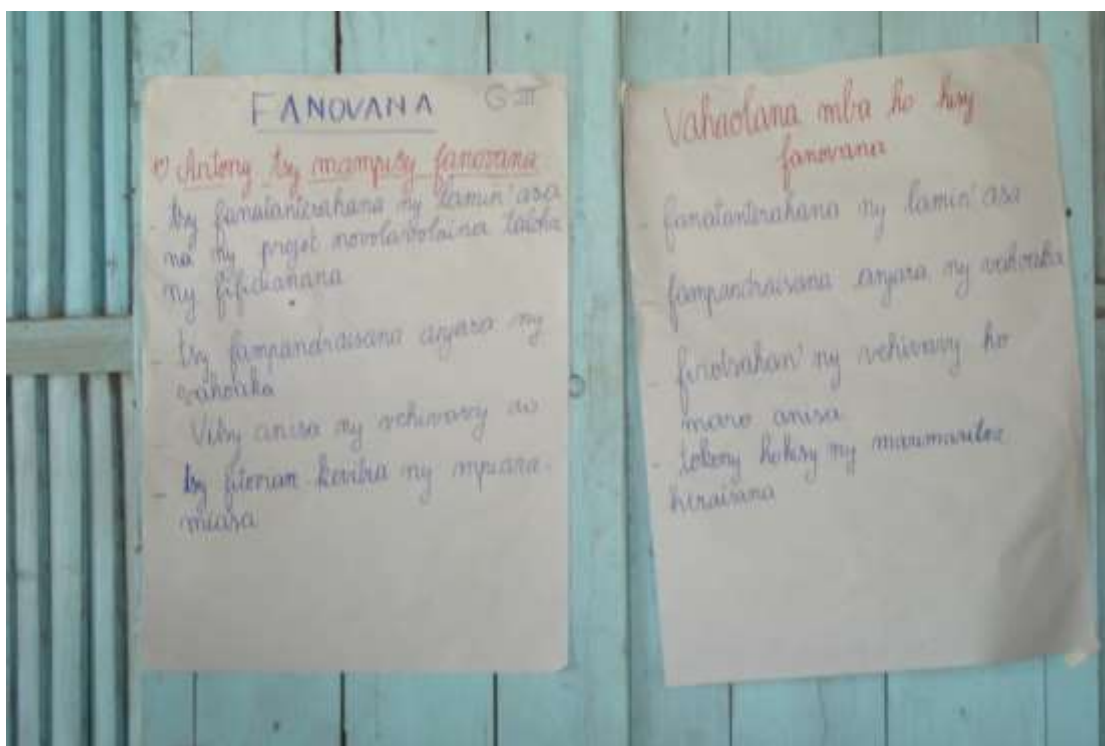 FANOVANA GIII
1) Antony tsy mampisy fanovana
- tsy fanatanterahana ny lamin'asa
na ny projet novolavolaina taloha
ny fifidianana
- tsy fampandraisana anjara ny
vahoaka
- Vitsy anisa ny vehivavy
- tsy fitonian ny mpiara-
miasa
Vahaolana mba ho hisy
fanovana
- fanatanterahana ny lamin'asa
- fampandraisana anjara ny vahoaka
- firotsahan'ny vehivavy ho
maro anisa
- tokony hohisy ny marimaritra
hiraisana